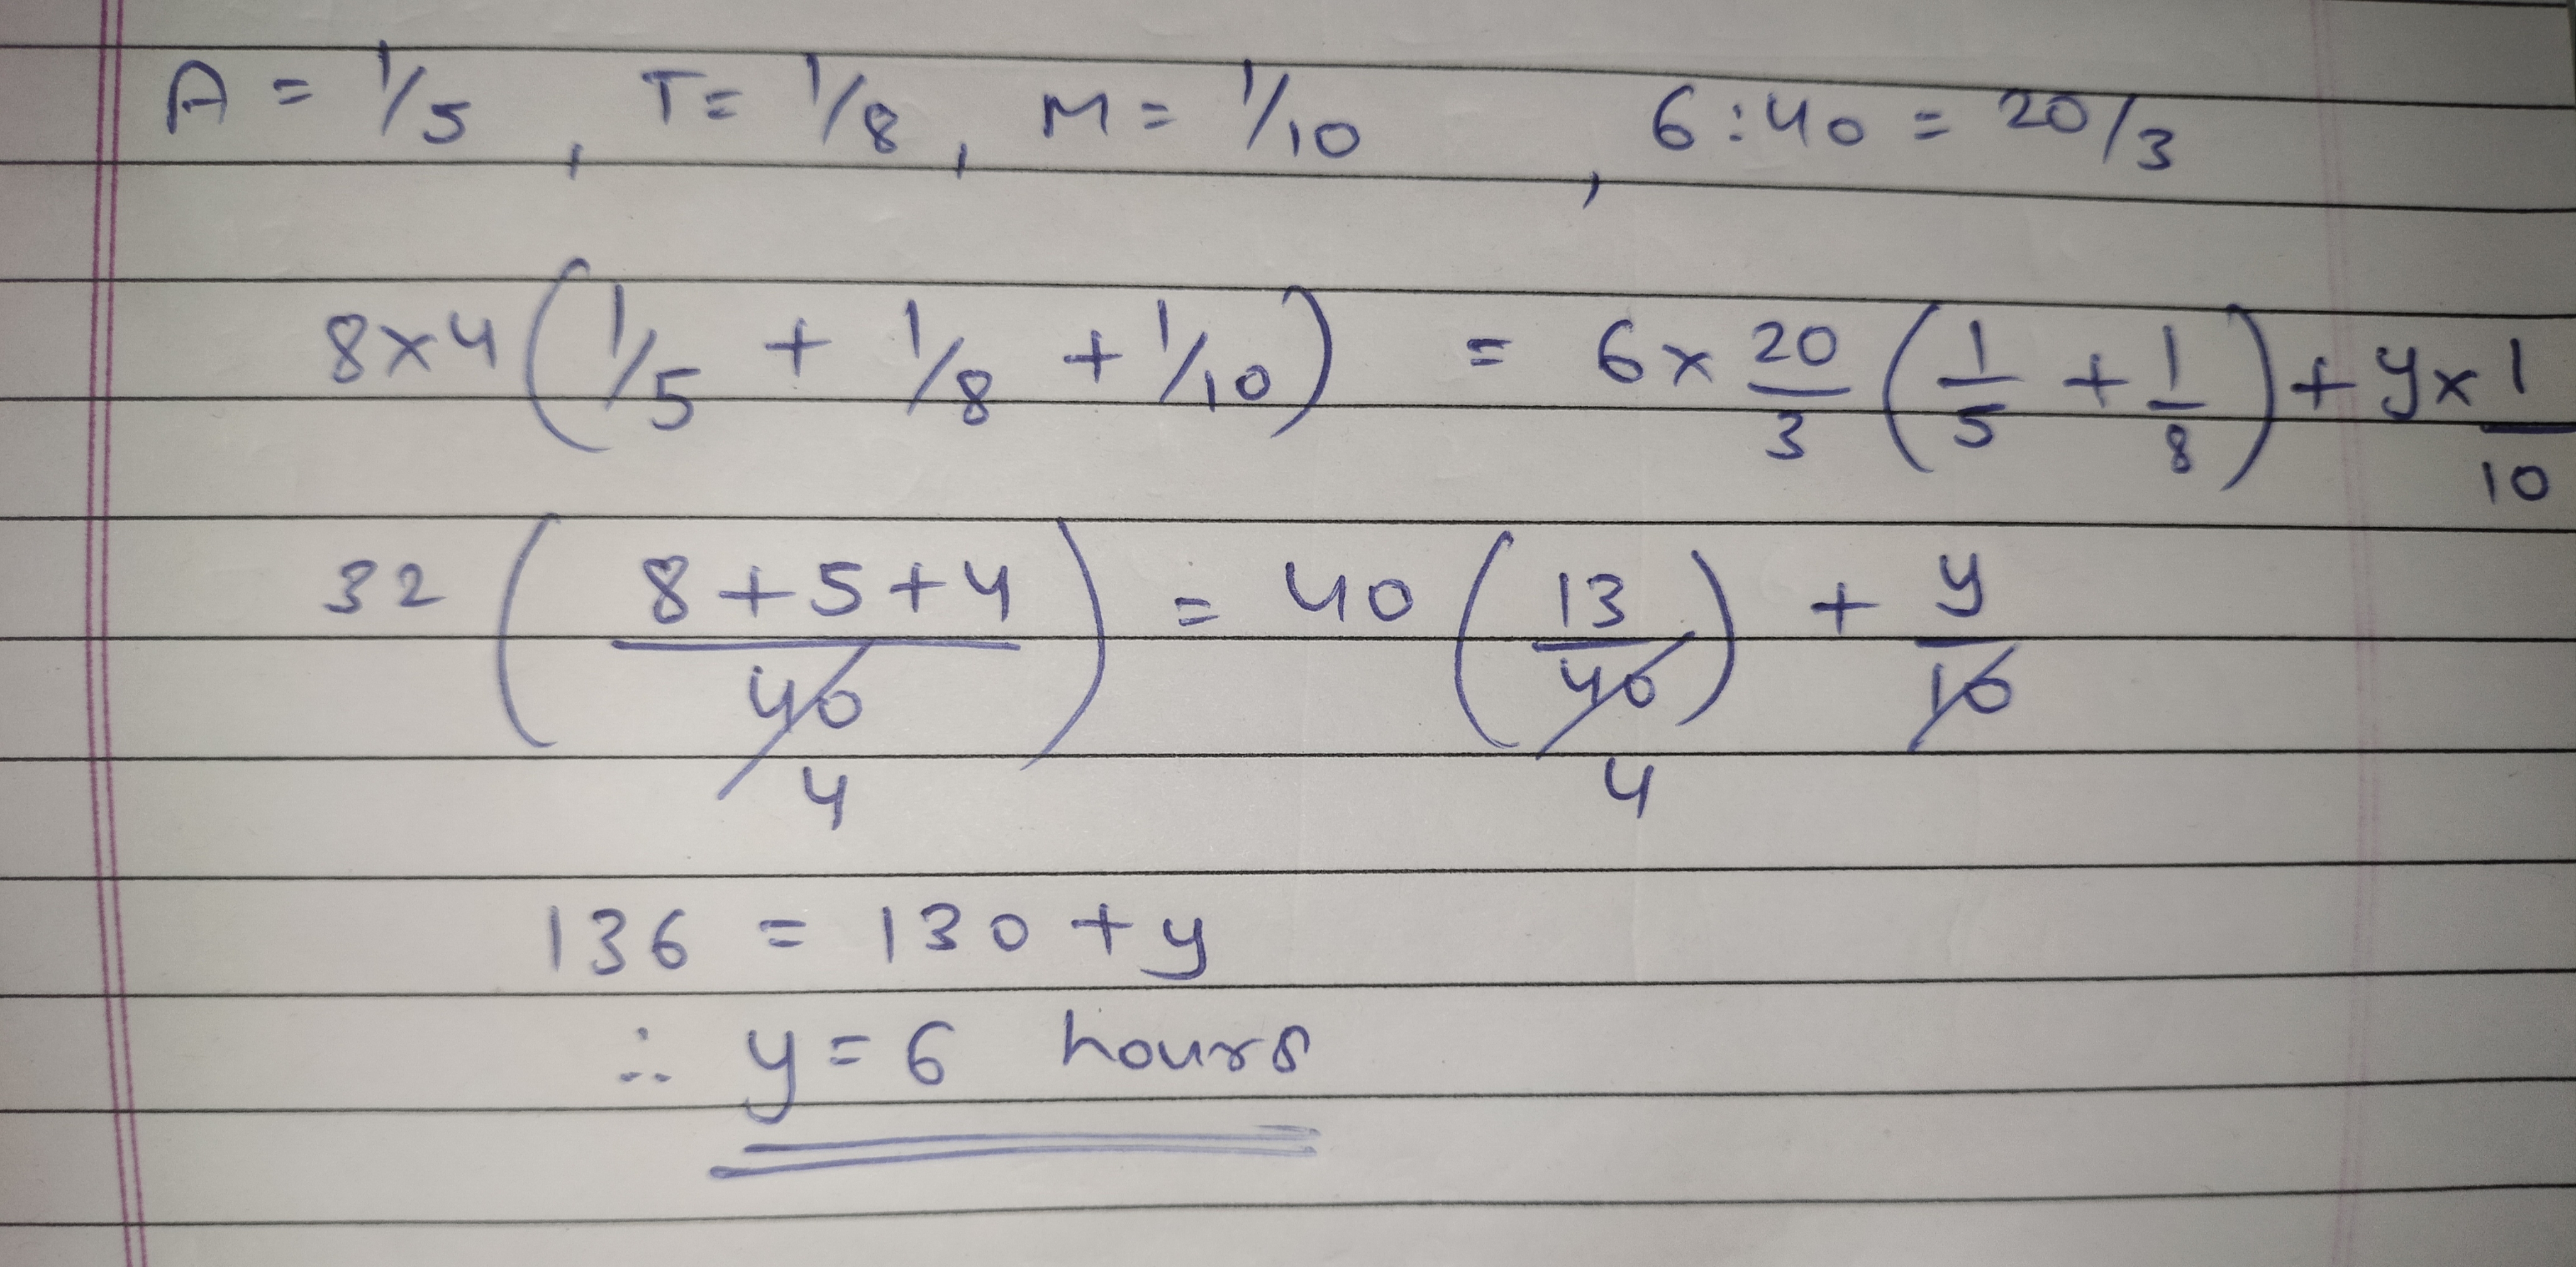 A = 1/5 , T = 1/8 , M = 1/10 , 6:40 = 20/3
8×4 (1/5 + 1/8 + 1/10) = 6 × 20/3 (1/5 + 1/8) + y × 1/10
32 (8+5+4/40) = 40 (13/40) + y/10
4 4
136 = 130 + y
∴ y = 6 hours